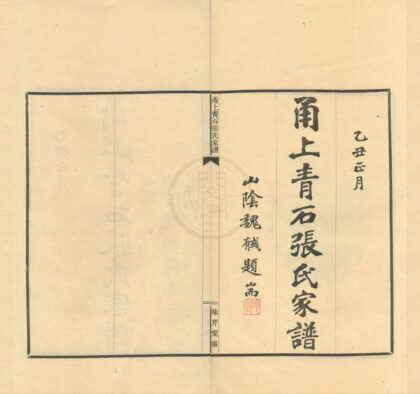 乙丑正月
甬上青石張氏家譜
山陰魏椷題耑
甬上青石張氏家譜
味芹堂張